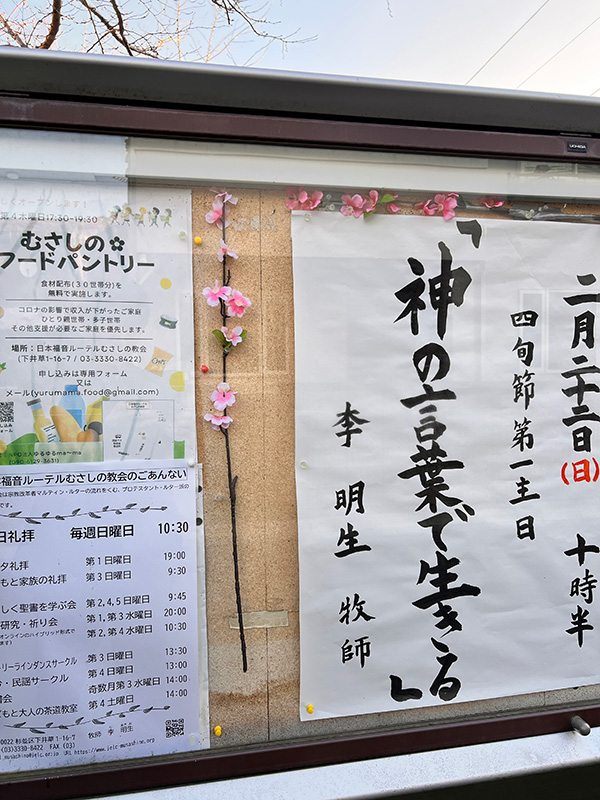 UCHIDA
第4木曜日17:30-19:30
むさしの
フードパントリー
食材配布(30世帯分)を
無料で実施します。
コロナの影響で収入が下がったご家庭
ひとり親世帯・多子世帯
その他支援が必要なご家庭を優先します。
場所:日本福音ルーテルむさしの教会
(下井草1-16-7 / 03-3330-8422)
申し込みは専用フォーム
又は
メール(yurumama.food@gmail.com)
本福音ルーテルむさしの教会のごあんない
は宗教改革者マルティン・ルターの流れをくむ、プロテスタント・ルター派の
です。
日礼拝 毎週日曜日 10:30
夕礼拝 第1日曜日 19:00
もと家族の礼拝 第3日曜日 9:30
しく聖書を学ぶ会 第2,4,5日曜日 9:45
研究・祈り会 第1,第3水曜日 20:00
オンラインのハイブリッド形式で
ます) 第2,第4水曜日 10:30
リーラインダンスサークル 第3日曜日 13:30
・民謡サークル 第4日曜日 13:00
会 奇数月第3水曜日 14:00
もと大人の茶道教室 第4土曜日 14:00
牧師 李 明生
0022 杉並区下井草1-16-7
(03)3330-8422 FAX (03)
URL https://www.jelc-musashino.org
二月二十二日(日) 十時半
四旬節第一主日
「神の言葉で生きる」
李 明生 牧師